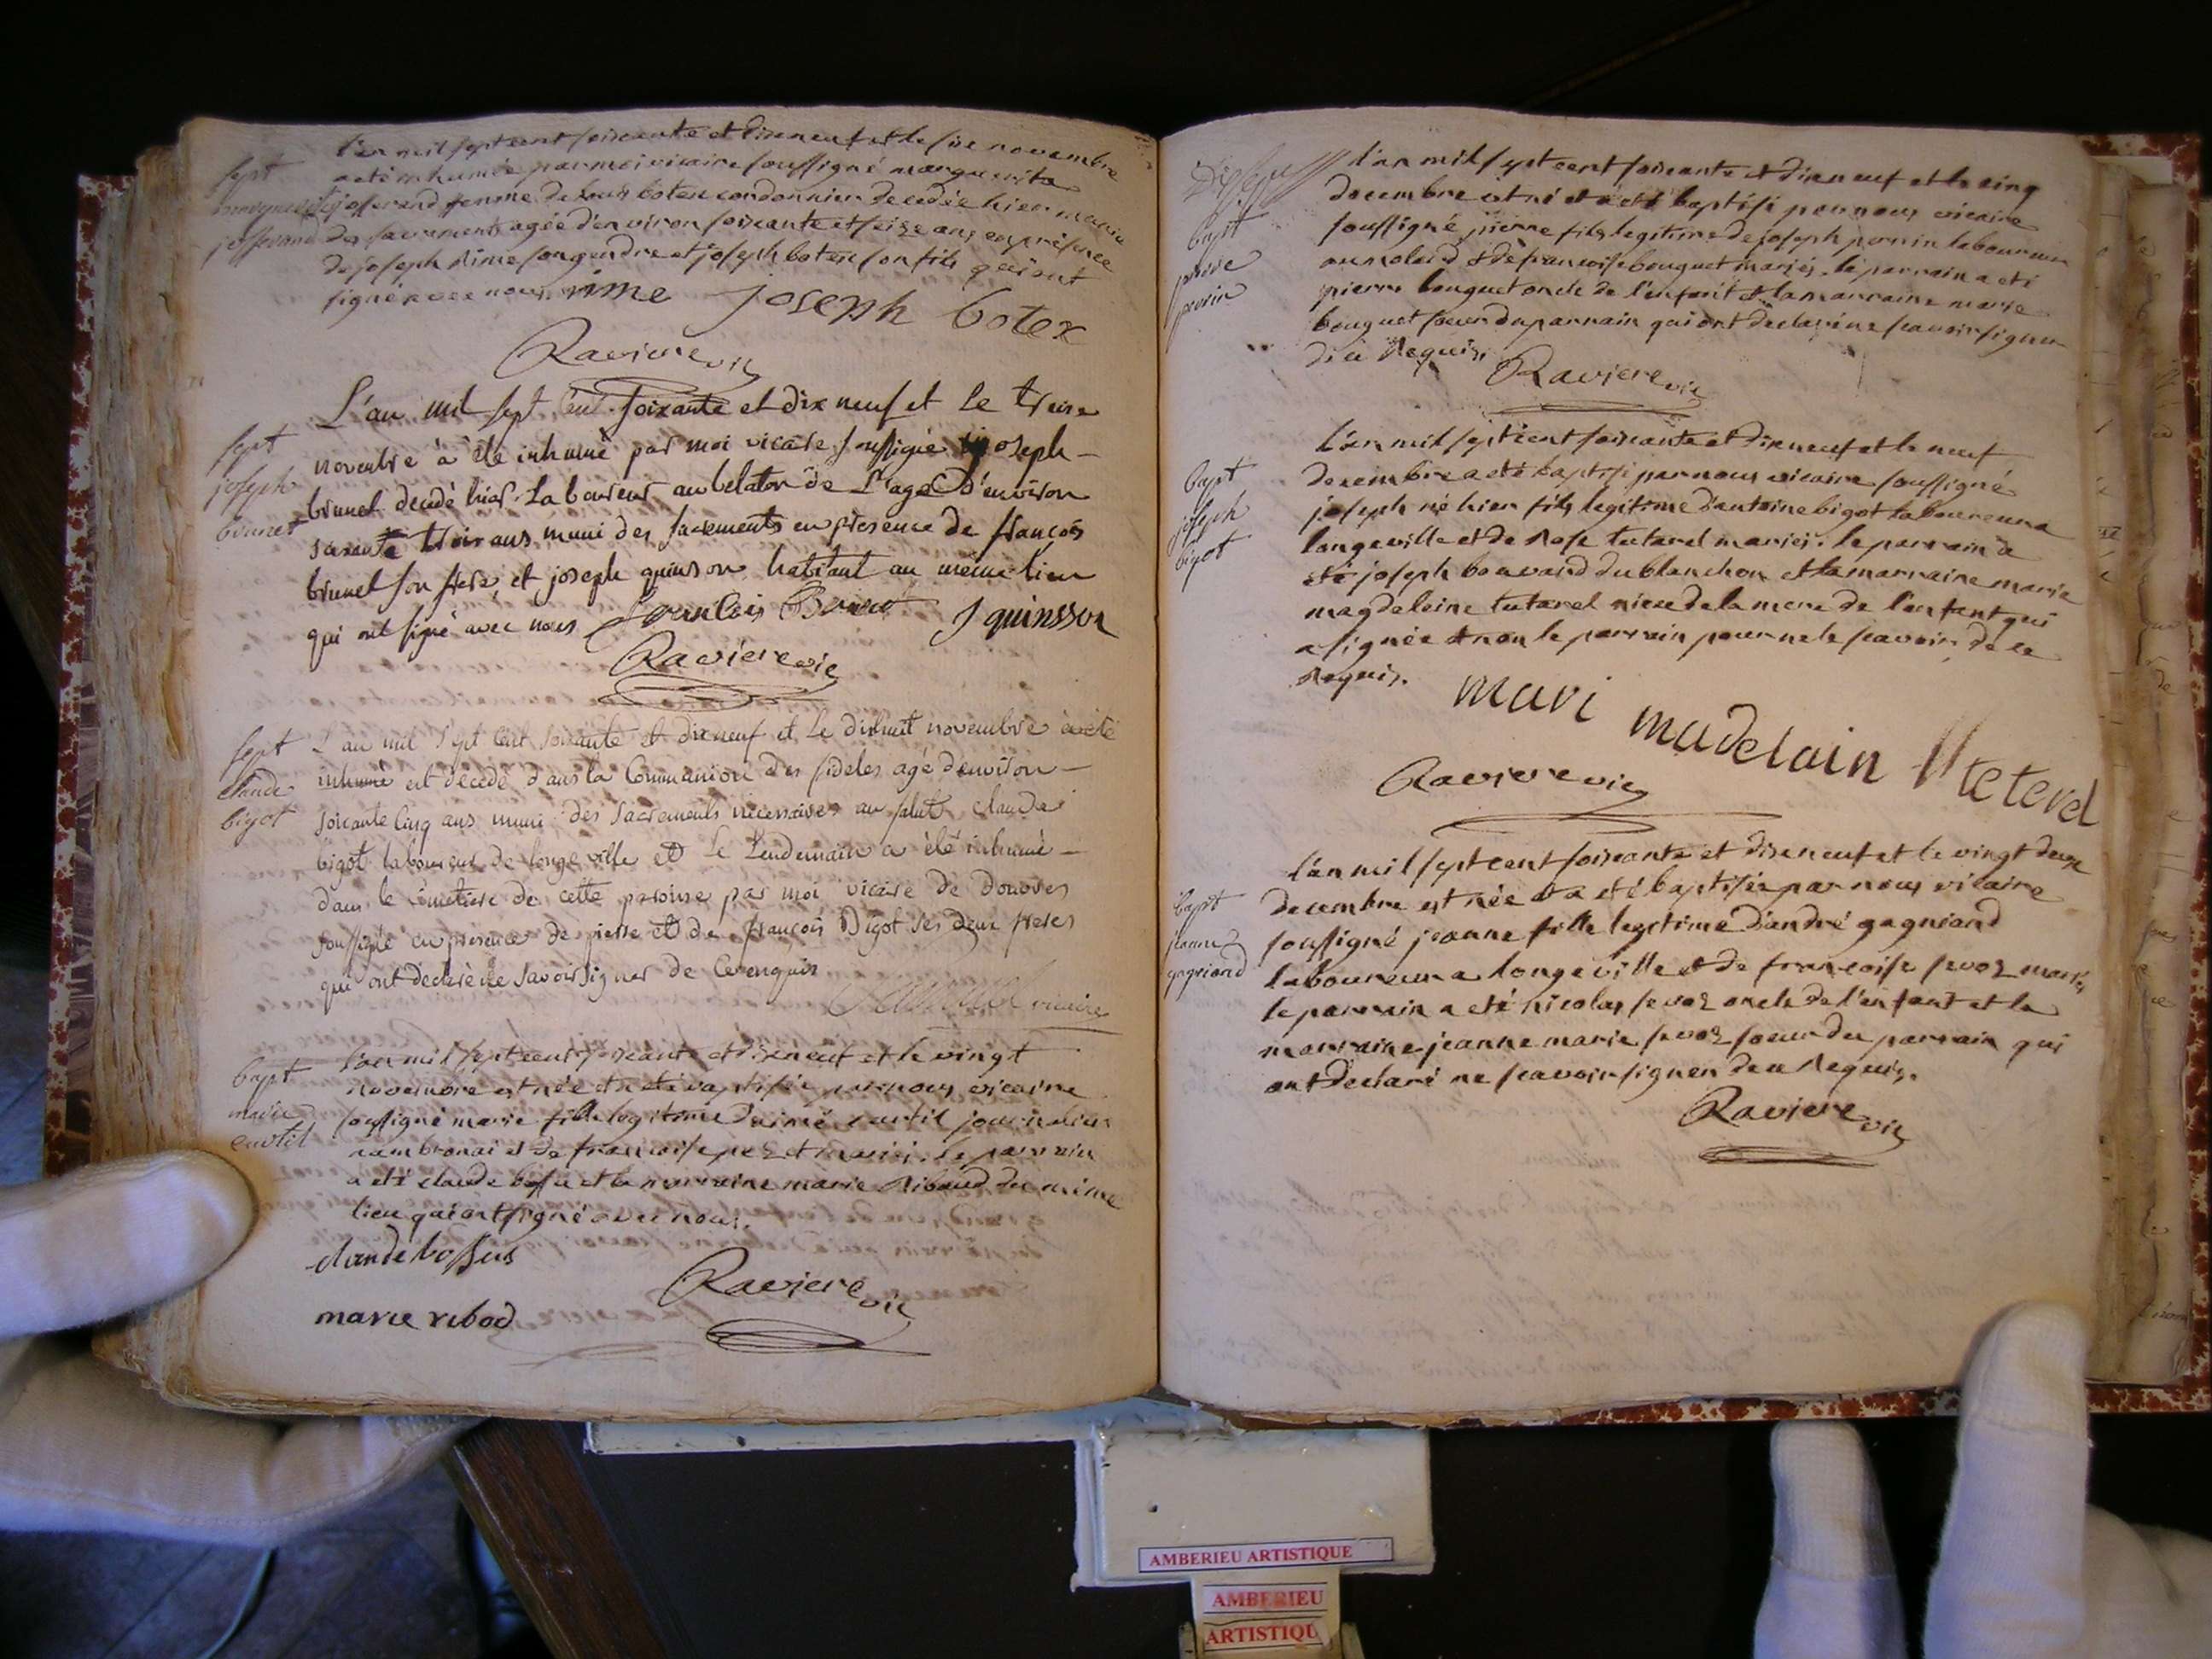 l'an mil sept cent soixante et dixneuf et le six novembre
a eté inhumée par moi vicaire soussigné marguerite
josserand femme de botex cordonnier decedée hier munie
des sacrements agée d'environ soixante et seize ans en présence
de joseph rime son gendre et joseph botex son fils qui ont
signé avec nous rime joseph botex
Raviere vic
sept
josserand
L'an mil sept cent soixante et dix neuf et le treize
novembre à été inhumé par moi vicaire soussigné joseph
brunet decedé hier laboureur au belaton de L'age d'environ
soixante trois ans muni des sacrements en presence de françois
brunet son frere et joseph quinson habitant au même lieu
qui ont signé avec nous J quinsson
Raviere vic
sept
joseph
brunet
L'an mil sept cent soixante et dixneuf et Le dixhuit novembre a été
inhumé est décedé dans la Communion des fideles agé d'environ
soixante cinq ans muni des sacrements necessaires au salut claude
bigot laboureur de longeville et Le Lendemain a été inhumé
dans le cimetiere de cette paroisse par moi vicaire de Douvres
soussigné en presence de pierre et de françois Bigot ses deux freres
qui ont declaré ne savoir signer de ce enquis
vicaire
sept
claude
bigot
l'an mil sept cent soixante et dixneuf et le vingt
novembre est née et a eté baptisée par nous vicaire
soussigné marie fille legitime d'aimé curtil journalier
a ambronai et de françoise mariés. le parrain
a eté claude bossu et la marraine marie Ribaud du même
lieu qui ont signé avec nous.
claude bossus
Raviere vic
marie ribod
bapt
marie
curtil
l'an mil sept cent soixante et dixneuf et le cinq
decembre est né et a eté baptisé par nous vicaire
soussigné pierre fils legitime de joseph perrin laboureur
et de françoise bouquet mariés. le parrain a eté
pierre bouquet oncle de l'enfant et la marraine marie
bouquet soeur du parrain qui ont declaré ne scavoir signer
de ce Requis. Raviere vic
bapt
pierre
perrin
l'an mil sept cent soixante et dixneuf et le neuf
decembre a eté baptisé par nous vicaire soussigné
joseph né hier fils legitime d'antoine bigot laboureur a
longeville et de Rose tutarel mariés. le parrain a
eté joseph bouvand du blanchon et la marraine marie
magdeleine tutarel niece de la mere de l'enfant qui
a signée et non le parrain pour ne le scavoir de ce
Requis.
mari madelain tteterel
Raviere vic
bapt
joseph
bigot
l'an mil sept cent soixante et dixneuf et le vingt deux
decembre est née et a eté baptisée par nous vicaire
soussigné jeanne fille legitime d'andré gagniand
laboureur a longeville et de françoise sevoz mariés
le parrain a eté nicolas sevoz oncle de l'enfant et la
marraine jeanne marie sevoz soeur du parrain qui
ont declaré ne scavoir signer de ce Requis.
Raviere vic
bapt
jeanne
gagniand
AMBERIEU ARTISTIQUE
AMBERIEU
ARTISTIQU